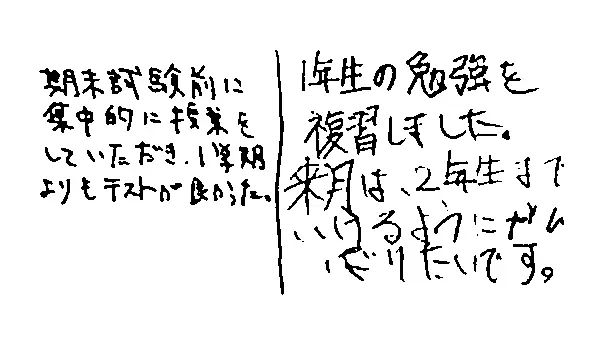 期末試験前に
集中的に授業を
していただき、1学期
よりもテストが良かった。
1年生の勉強を
複習しました。
来月は、2年生まで
いけるようにガン
バりたいです。